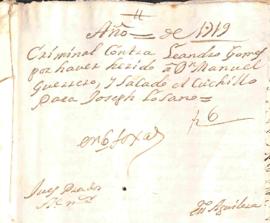 Año de 1719
Criminal Contra Leandro Gomez
por haver herido a Dn Manuel
Guerrero, y Salado el Cuchillo
para Joseph Losano
f 6
en 6 foxas
Juez Prados